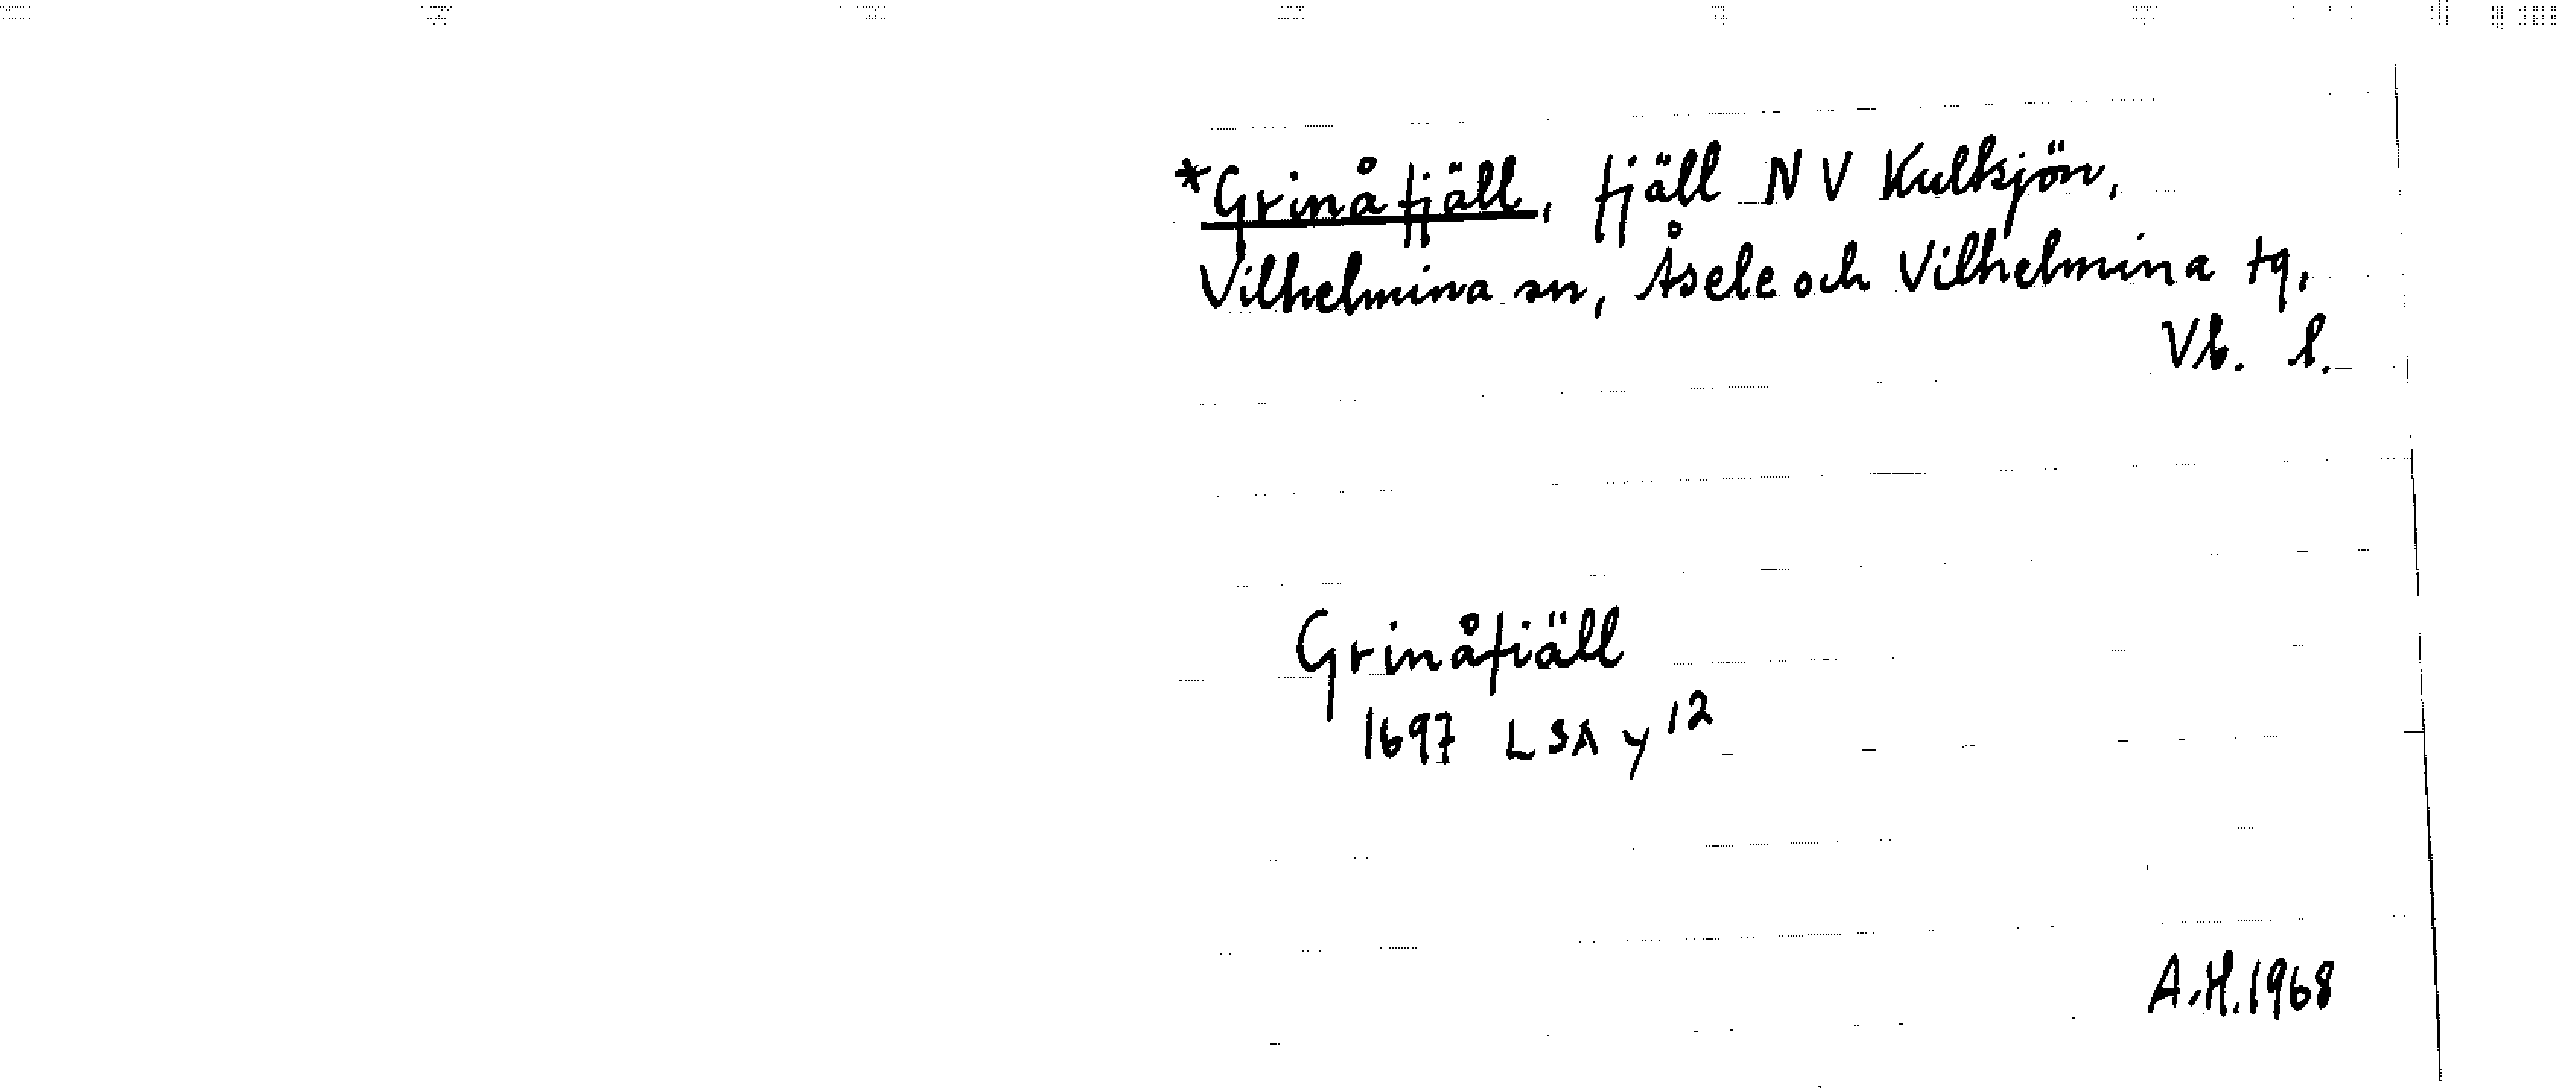 *Grinåfjäll, fjäll NV Kultsjön,
Vilhelmina sn, Åsele och Vilhelmina tg,
Vb. l.
Grinåfiäll
1697 LSA y 12
A.H. 1968